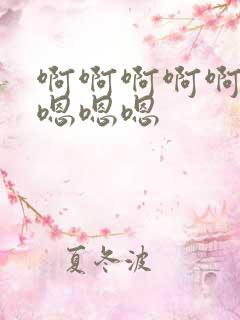 啊啊啊啊啊
嗯嗯嗯
夏冬波